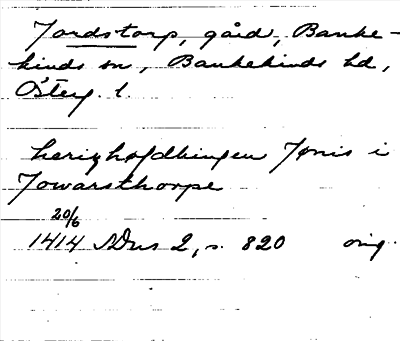 Jordstorp, gård, Banke-
kinds sn, Bankekinds hd,
Österg. l.
herizhofdhingen Jønis i
Jowarsthorpe
20/6
1414 NDus 2, s. 820 orig.